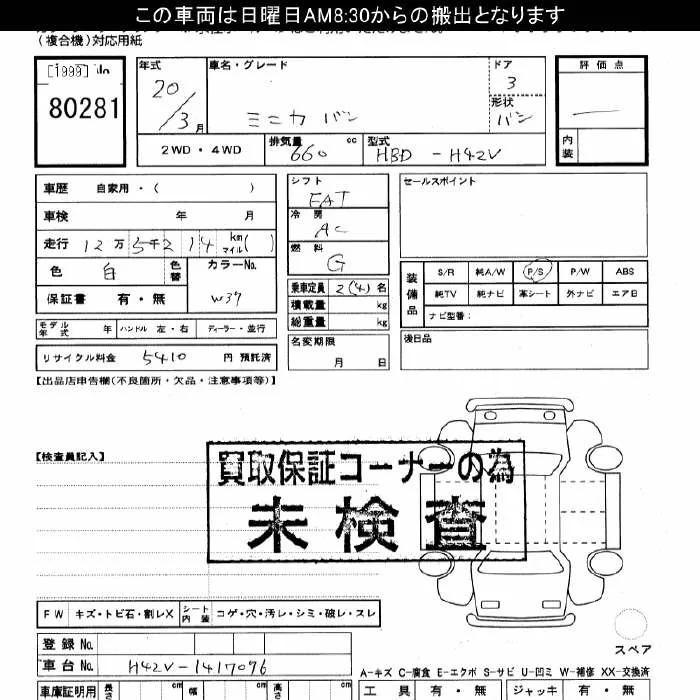 この車両は日曜日AM8:30からの搬出となります
(複合機)対応用紙
[1999] No
80281
年式
20/3月
車名・グレード
ミニカ バン
ドア
3
形状
バン
評価点
—
内装
2WD・4WD
排気量
660
cc
型式
HBD-H42V
車歴 自家用・( )
車検 年 月
走行 12万5千214 km マイル( )
色 白 色替
カラーNo.
W37
保証書 有・無
モデル年式 年 ハンドル 左・右 ディーラー・並行
リサイクル料金 5410 円 預託済
シフト
FAT
冷房
AC
燃料
G
乗車定員 2(4) 名
積載量 kg
総重量 kg
名変期限
月 日
セールスポイント
装備品
S/R 純A/W P/S P/W ABS
純TV 純ナビ 革シート 外ナビ エアB
ナビ型番:
後日品
【出品店申告欄(不良箇所・欠品・注意事項等)】
【検査員記入】
買取保証コーナーの為
未検査
FW キズ・トビ石・割レX シート内装 コゲ・穴・汚レ・シミ・破レ・スレ
登録No.
車台No. H42V-1417096
スペア
A-キズ C-腐食 E-エクボ S-サビ U-凹ミ W-補修 XX-交換済
車庫証明用 長さ cm 幅 cm 高さ cm
工具 有・無 ジャッキ 有・無